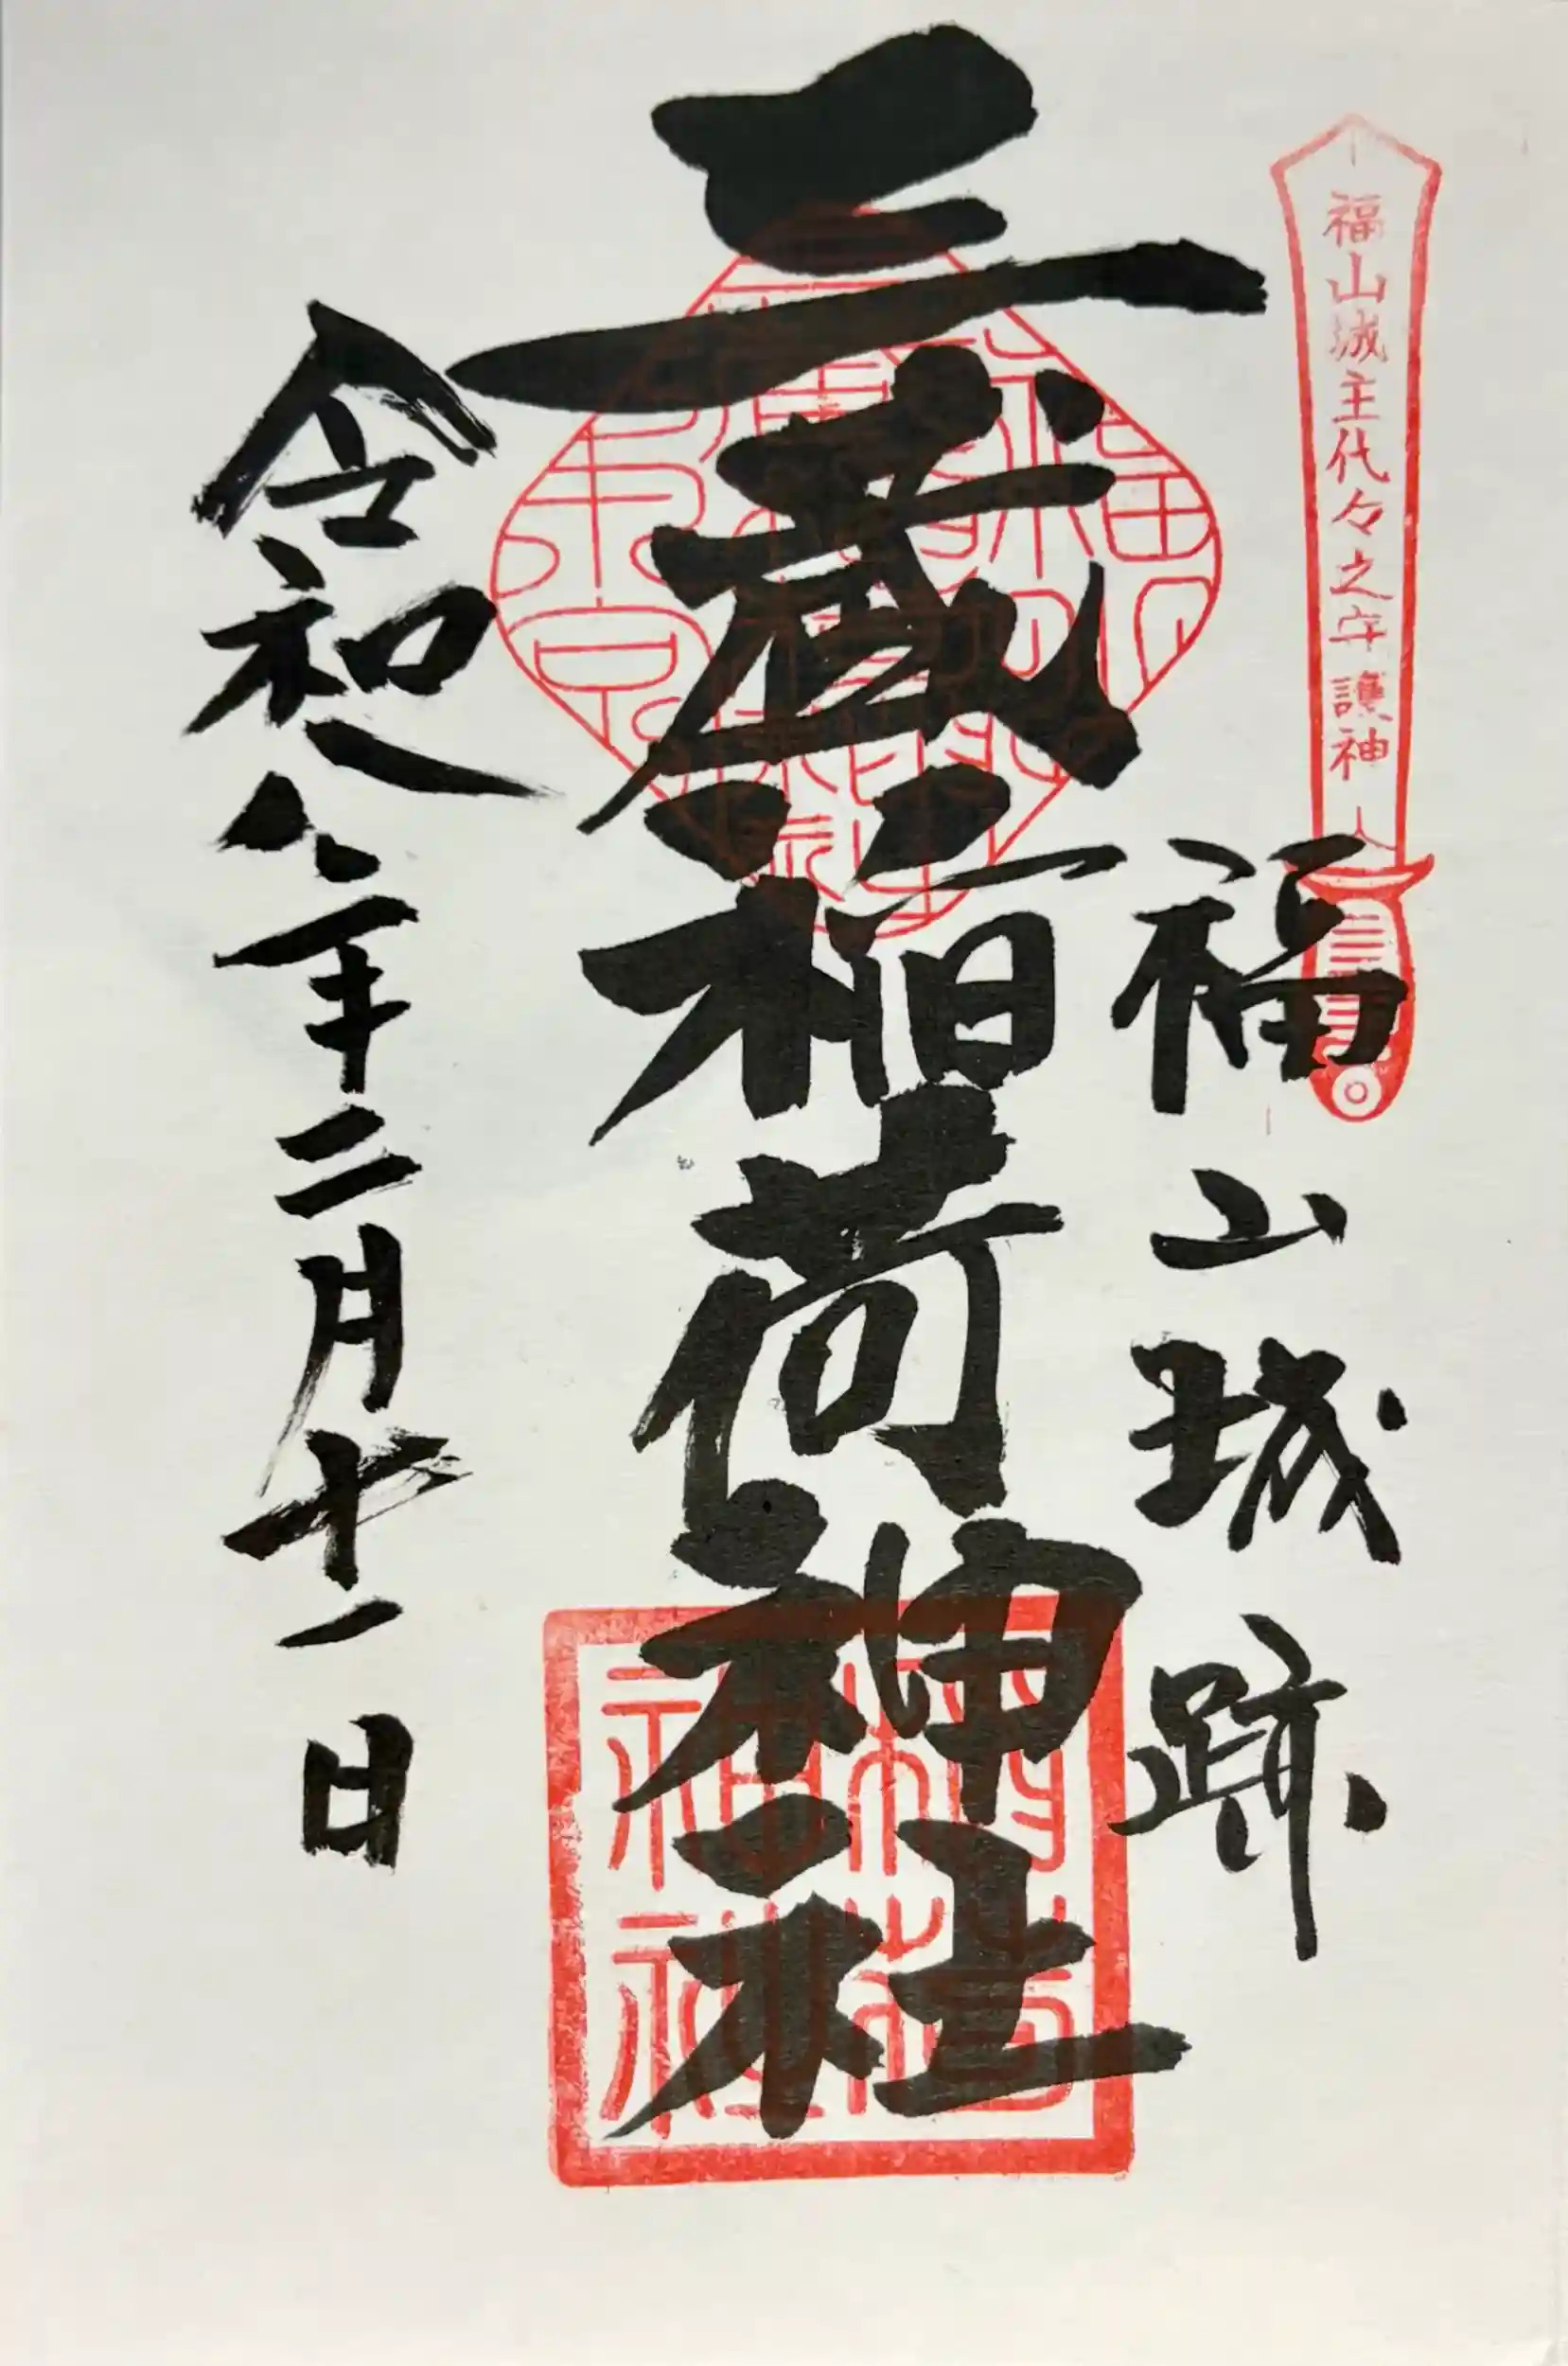 福山城主代々之守護神
福山城跡
三蔵稲荷神社
稲荷
神社
令和八年二月十一日